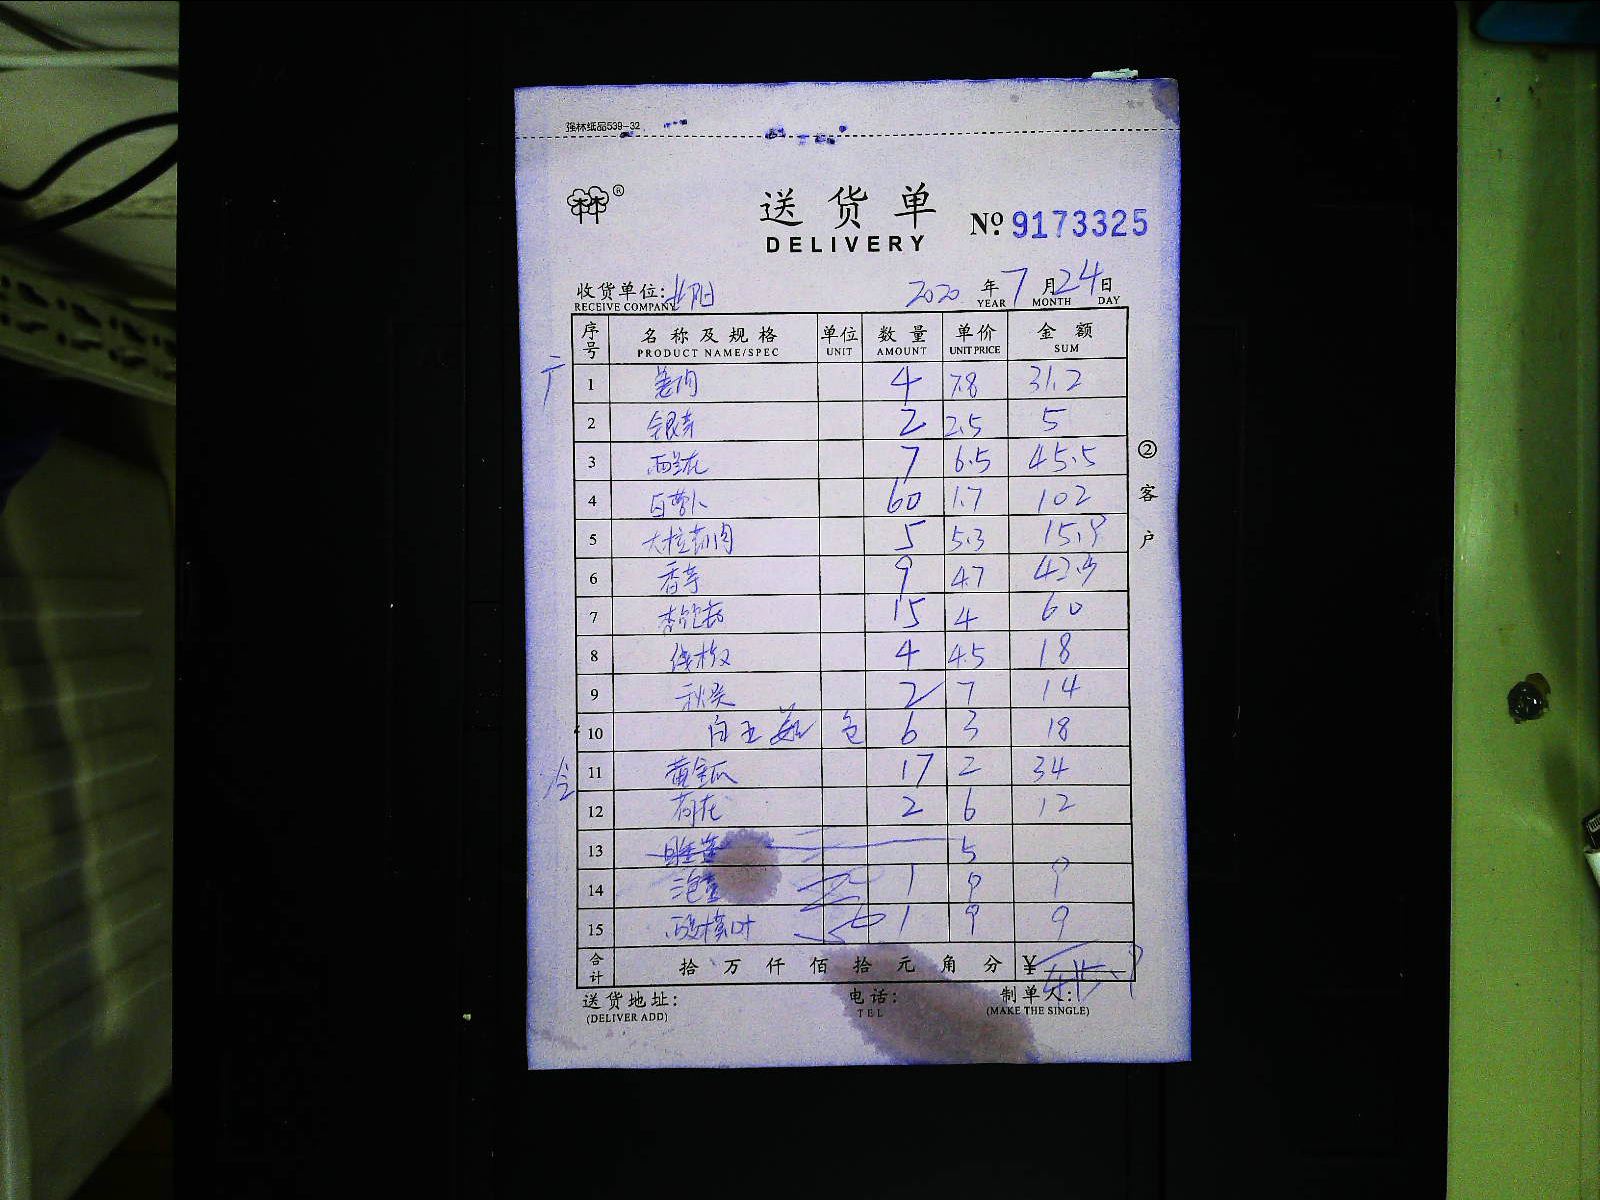 强林纸品539-32
林林®
送货单
DELIVERY
№ 9173325
收货单位:
RECEIVE COMPANY
2020年7月24日
YEAR MONTH DAY
序号 名称及规格 单位 数量 单价 金额
PRODUCT NAME/SPEC UNIT AMOUNT UNIT PRICE SUM
1 姜肉 4 7.8 31.2
2 银芽 2 2.5 5
3 西兰花 7 6.5 45.5
4 白萝卜 60 1.7 102
5 5 5.3 15.9
6 香芋 9 4.7 42.3
7 杏鲍菇 15 4 60
8 线椒 4 4.5 18
9 秋葵 2 7 14
10 白玉菇 包 6 3 18
11 黄金瓜 17 2 34
12 2 6 12
13 5
14 1 9 9
15 1 9 9
合计 拾万仟佰拾元角分 ¥
送货地址: 电话: 制单人:
(DELIVER ADD) TEL (MAKE THE SINGLE)
②客户